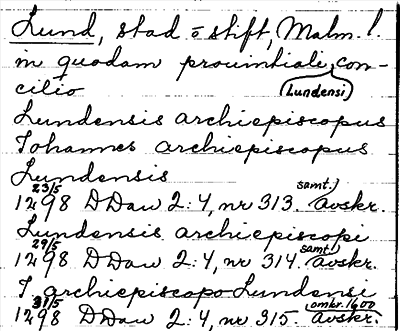 Lund, stad o stift, Malm. l.
in quodam prouintiali con-
(Lundensi)
cilio
Lundensis archiepiscopus
Iohannes archiepiscopus
Lundensis
23/5 samt.)
1298 DDan 2:4, nr 313. avskr.
Lundensis archiepiscopi
29/5 samt.)
1298 DDan 2:4, nr 314. avskr.
I archiepiscopo Lundensi
31/5 omkr. 1600
1298 DDan 2:4, nr 315. avskr.